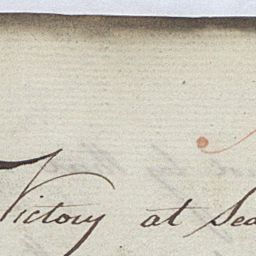 Victory at Sea